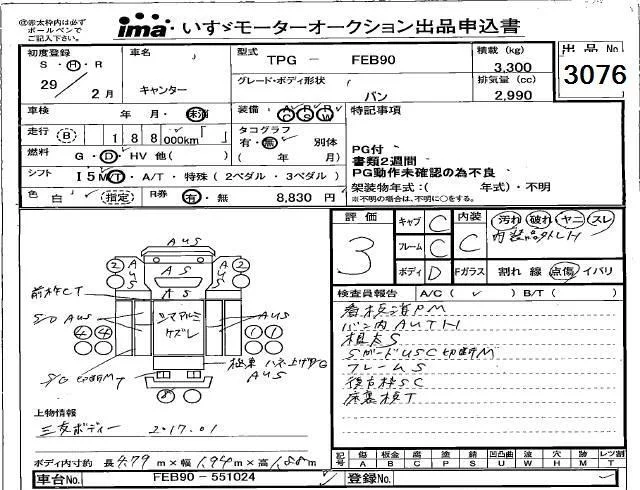 ㊟赤太枠内は必ず
ボールペンで
ご記入下さい。
ima いすゞモーターオークション出品申込書
初度登録 車名 型式 TPG － FEB90 積載 (kg) 3,300 出品No.
S・H・R
29／2月 キャンター グレード・ボディ形状 バン 排気量 (cc) 2,990 3076
車検 年 月・未消 装備 A/C P/S P/W 特記事項
走行 B 188 000km タコグラフ 有・無 別体
PG付
燃料 G・D・HV 他( ) ( 年 月)
書類2週間
シフト I5M T・A/T・特殊(2ペダル・3ペダル)
PG動作未確認の為不良
架装物年式:( 年式)・不明
色 白 (指定) R券 有・無 8,830 円
※不明の場合は、不明に○をする。
評価 キャブ C 内装 汚れ 破れ ヤニ スレ
3 フレーム C C
ボディ D Fガラス 割れ 線 点傷 イバリ
検査員報告 A/C ( ✓ ) B/T ( )
看板済PM
バン内AUTH
根太S
SガードUSC切断M
フレームS
後方枠SC
床裏板T
AUS
AUS
AUS
AS
AS
2
2
S/D AUS
AUS
4 4
1 1
8
AUS
上物情報
三菱ボディー 2017.01
ボディ内寸約 長 4.79 m×幅 1.94 m×高 1.88 m
記号 傷 A 板金 B 腐 C 塗 P 錆 S 凹凸曲 U 波 W 穴 H 跡 M レツ割 T
車台No. FEB90－551024 登録No.